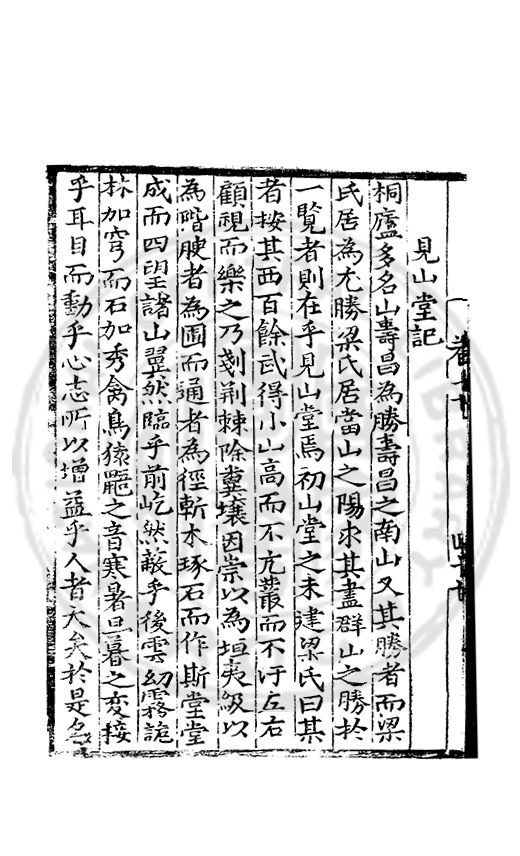 見山堂記
桐廬多名山壽昌為勝壽昌之南山又其勝者而梁
氏居為尤勝梁氏居當山之陽求其盡群山之勝於
一覽者則在乎見山堂焉初山堂之未建梁氏曰某
者按其西百餘武得小山高而不亢叢而不汙左右
顧視而樂之乃剗荆棘除糞壤因崇以為垣夷級以
為階腴者為圃而通者為徑斬木琢石而作斯堂堂
成而四望諸山翼然臨乎前屹然蔽乎後雲幻霧詭
林加穹而石加秀禽鳥猿鼯之音寒暑旦暮之変接
乎耳目而動乎心志所以增益乎人者大矣於是名